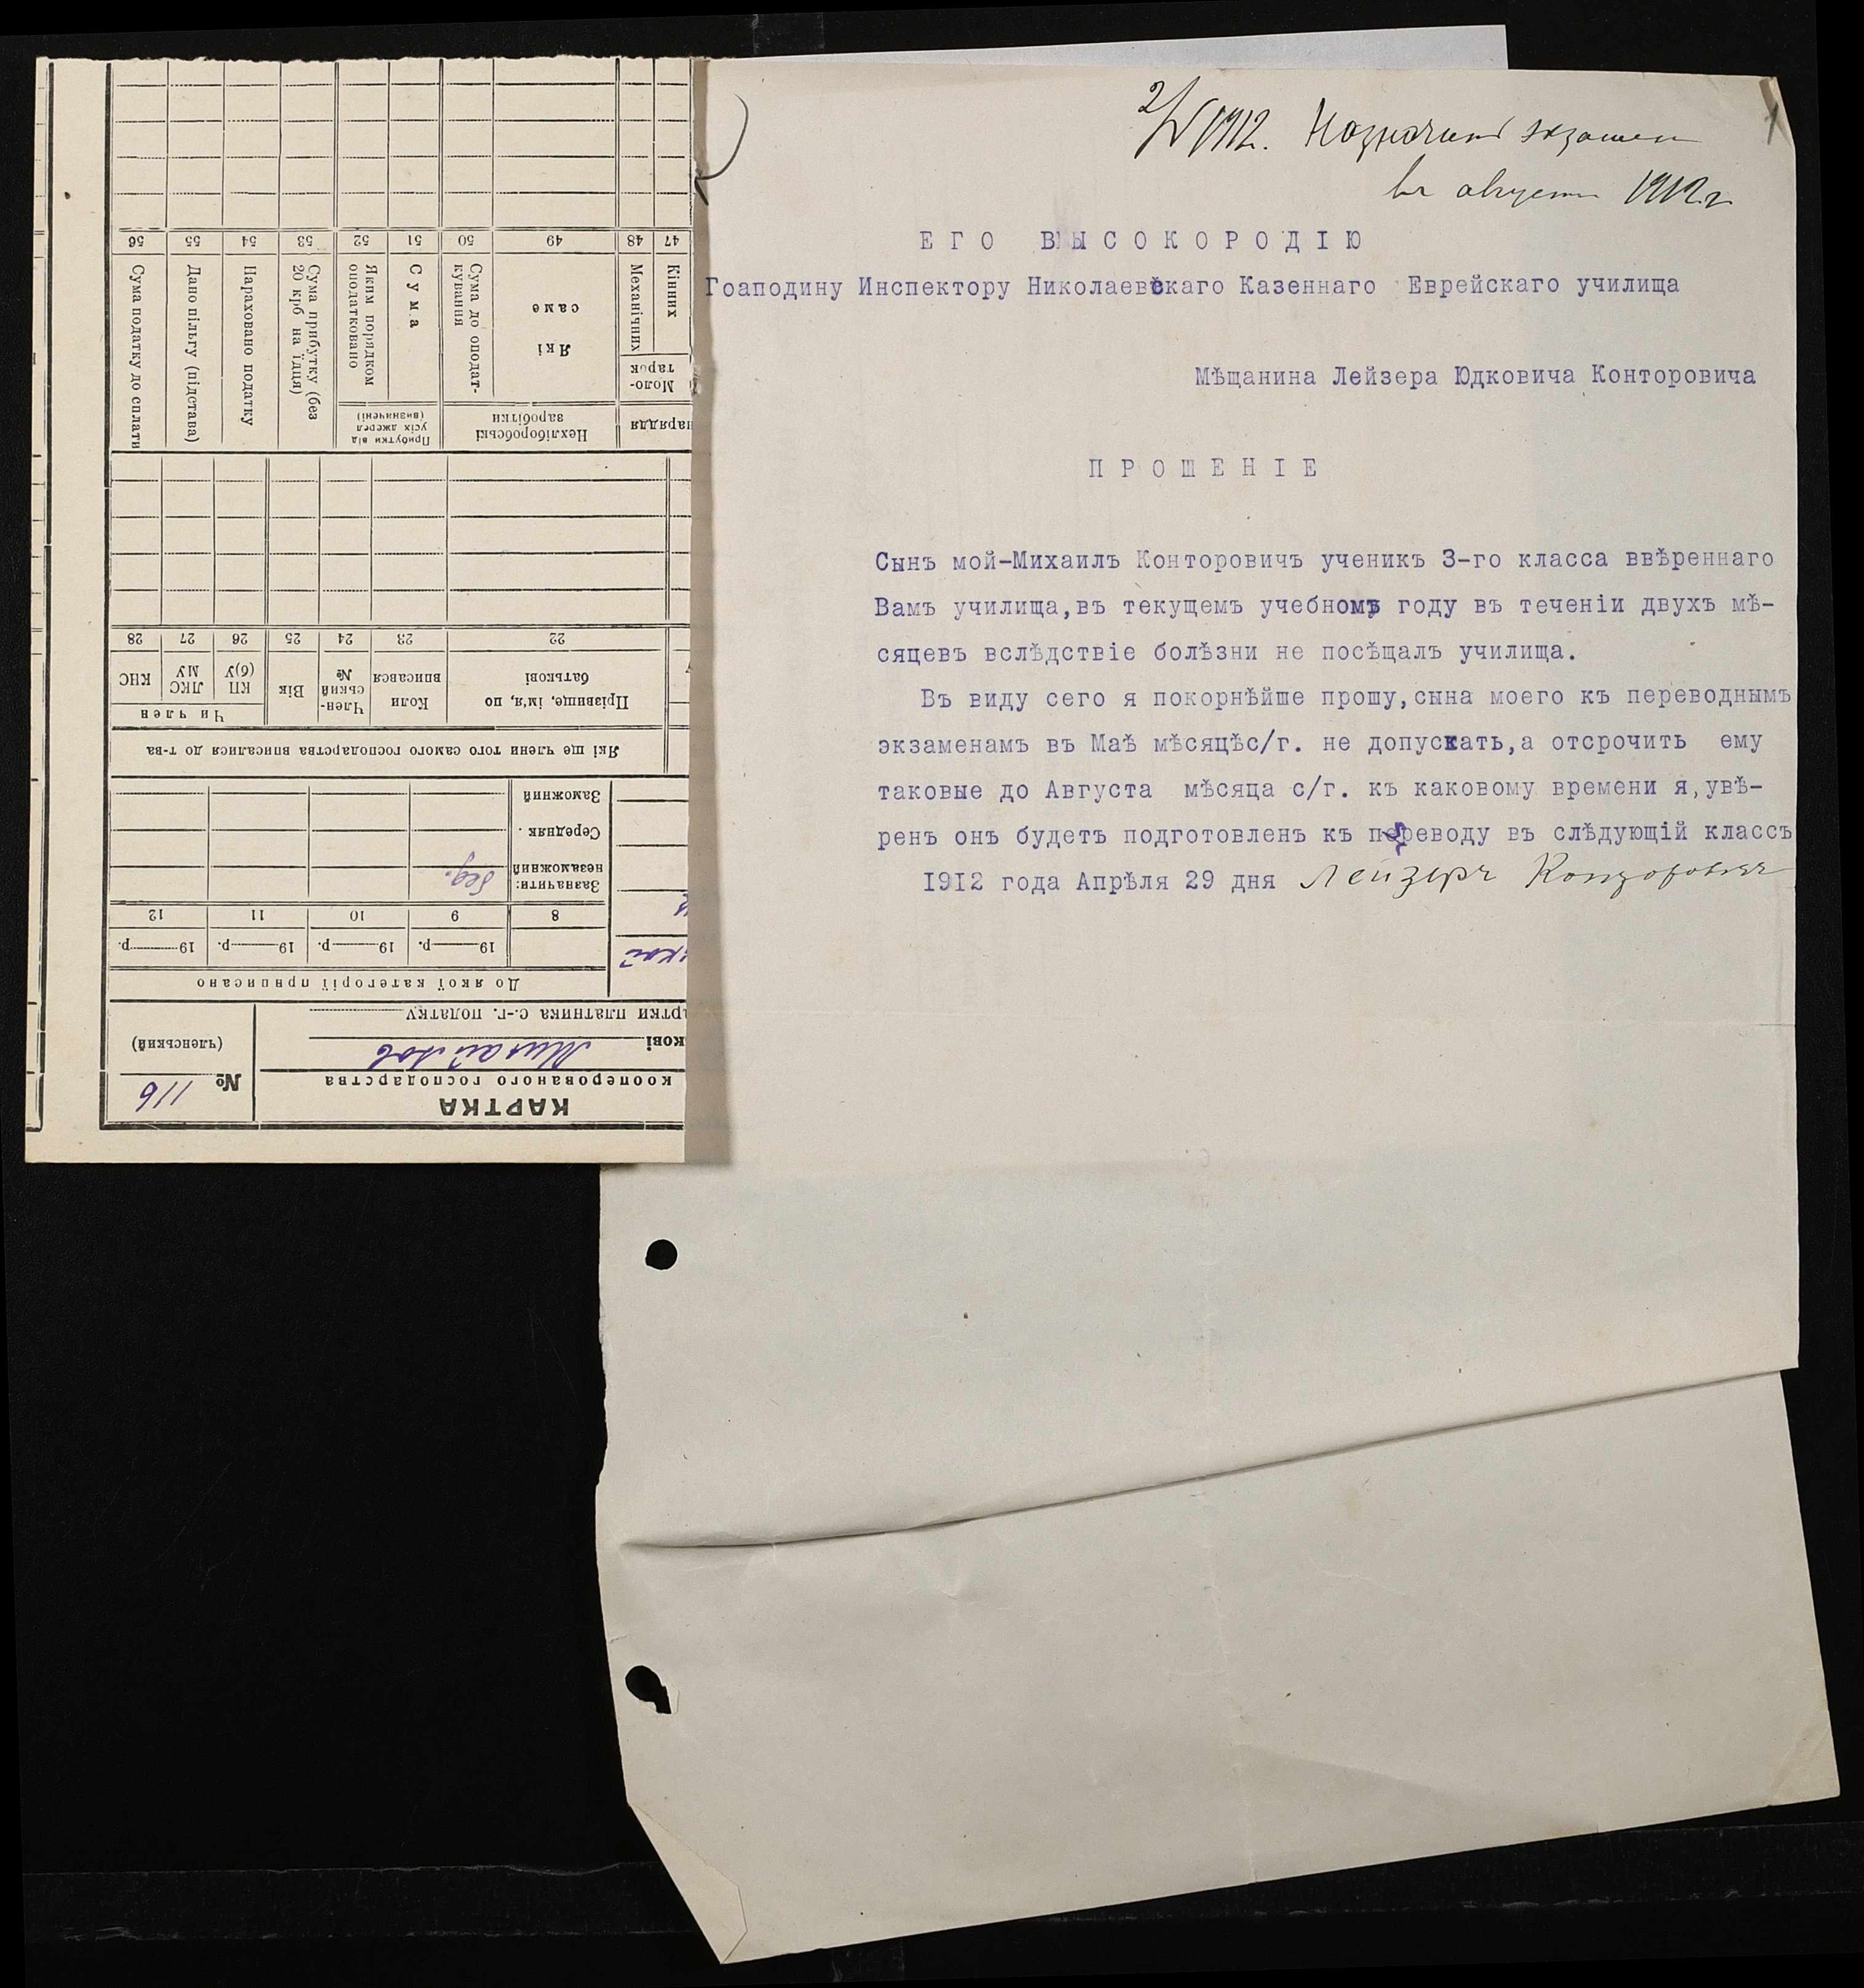 1
2/V 1912. Назначить экзамен
въ августе 1912 г
ЕГО ВЫСОКОРОДІЮ
Гоаподину Инспектору Николаевскаго Казеннаго Еврейскаго училища
Мѣщанина Лейзера Юдковича Конторовича
ПРОШЕНІЕ
Сынъ мой-Михаилъ Конторовичъ ученикъ 3-го класса ввѣреннаго
Вамъ училища,въ текущемъ учебномъ году въ теченіи двухъ мѣ-
сяцевъ вслѣдствіе болѣзни не посѣщалъ училища.
Въ виду сего я покорнѣйше прошу,сына моего къ переводнымъ
экзаменамъ въ Маѣ мѣсяцѣс/г. не допускать,а отсрочить ему
таковые до Августа мѣсяца с/г. къ каковому времени я,увѣ-
ренъ онъ будетъ подготовленъ къ переводу въ слѣдующій классъ
1912 года Апрѣля 29 дня Лейзеръ Конторовичъ
КАРТКА
кооперованого господарства
№ 116
(членський)
кові Михайлов
артки платника с.-г. податку
До якої категорії приписано
19 р. 19 р. 19 р. 19 р.
8 9 10 11 12
Зазначити:
незаможний бед.
Середняк .
Заможний
Які ще члени того самого господарства вписалися до т-ва
Прізвище, ім'я, по
батькові
Коли
вписався
Член-
ський
№
Вік
Чи член
КП
(б)У
ЛКС
МУ
КНС
22 23 24 25 26 27 28
наряддя
Моло-
тарок
Кінних
Механічних
Нехліборобські
заробітки
Які
саме
Сума до оподат-
кування
Прибутки від
усіх джерел
(визначені)
Сума
Яким порядком
оподатковано
Сума прибутку (без
20 крб на їдця)
Нараховано податку
Дано пільгу (підстава)
Сума податку до сплати
47 48 49 50 51 52 53 54 55 56